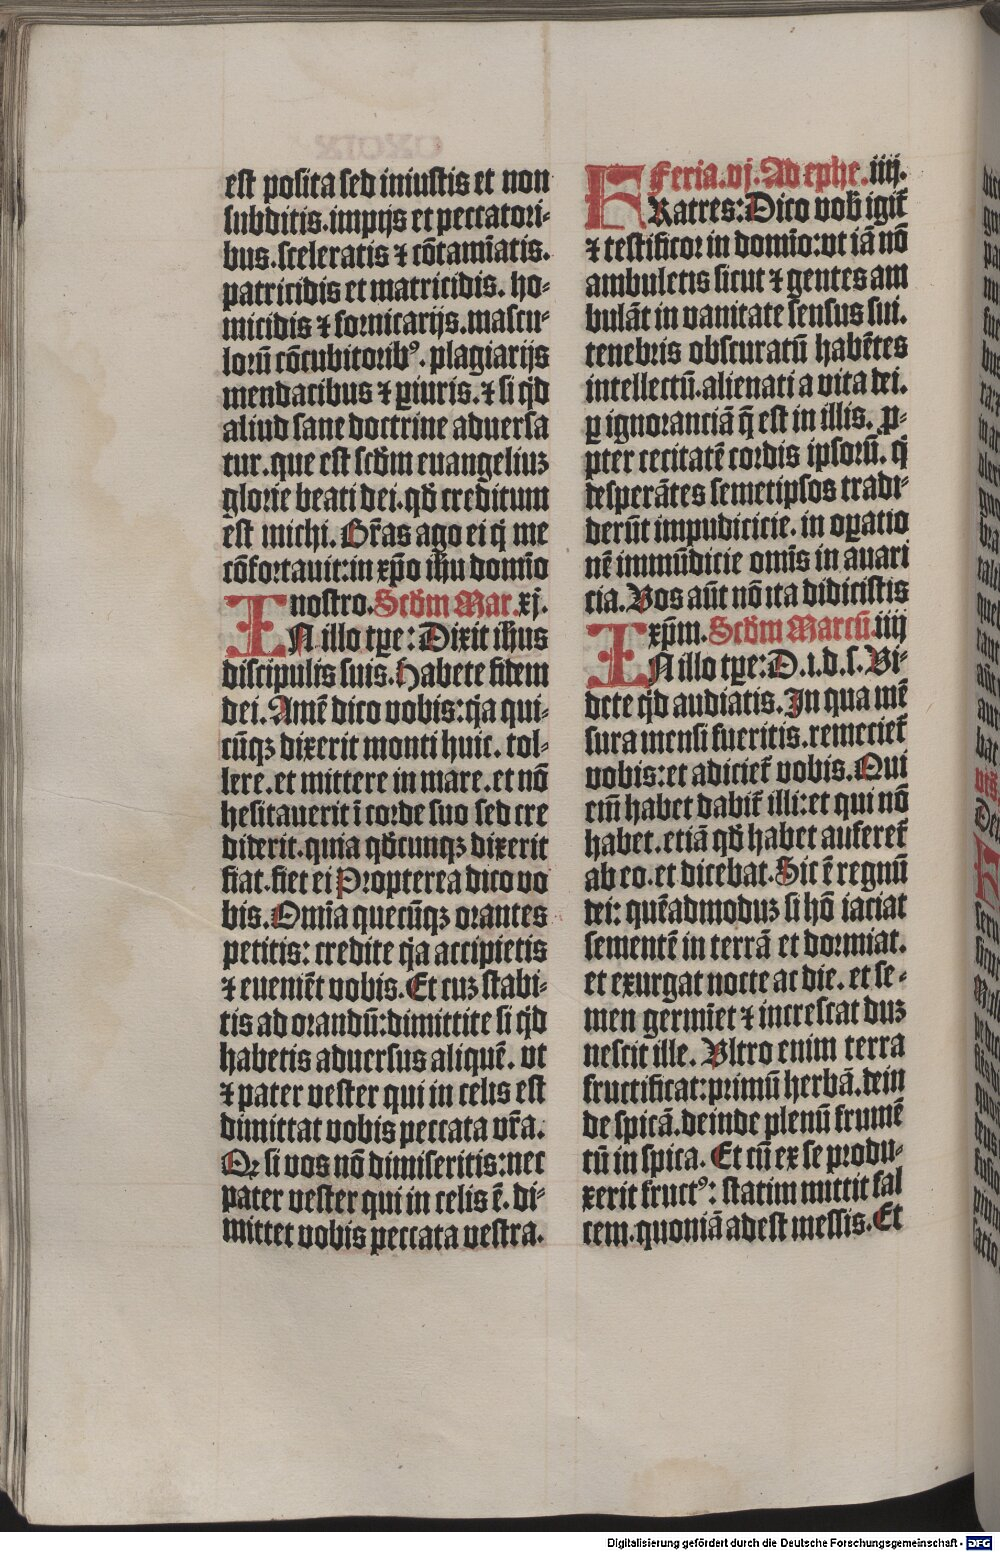 est posita sed iniustis et non
subditis. impijs et peccatori-
bus. sceleratis ⁊ cōtamīatis.
patricidis et matricidis. ho-
micidis ⁊ fornicarijs. mascu-
lorū cōcubitoribꝰ. plagiarijs
mendacibus ⁊ ꝑiuris. ⁊ si qͥd
aliud sane doctrine aduersa
tur. que est scd̄m euangeliuꝫ
glorie beati dei. qd̄ creditum
est michi. Gr̄as ago ei qͥ me
cōfortauit: in xp̄o ih̄u domīo
nostro. Scd̄m Mar. xj.
IN illo tꝑe: Dixit ih̄us
discipulis suis. Habete fidem
dei. Amē dico vobis: qͥa qui-
cūqꝫ dixerit monti huic. tol-
lere. et mittere in mare. et nō
hesitauerit ī corde suo sed cre
diderit. quia qd̄cunqꝫ dixerit
fiat. fiet ei Propterea dico vo
bis. Omīa quecūqꝫ orantes
petitis: credite qͥa accipietis
⁊ eueniēt vobis. Et cuꝫ stabi-
tis ad orandū: dimittite si qͥd
habetis aduersus aliquē. vt
⁊ pater vester qui in celis est
dimittat vobis peccata vr̄a.
Qꝛ si vos nō dimiseritis: nec
pater vester qui in celis ē. di-
mittet vobis peccata vestra.
Feria. vj. Ad ephe. iiij.
FRatres: Dico vob̄ igit̄
⁊ testificor in domīo: vt iā nō
ambuletis sicut ⁊ gentes am
bulāt in vanitate sensus sui.
tenebris obscuratū habētes
intellectū. alienati a vita dei.
ꝑ ignoranciā q̄ est in illis. ꝓ-
pter cecitatē cordis ipsorū. qͥ
desperātes semetipsos tradi-
derūt impudicicie. in oꝑatio
nē immūdicie om̄is in auari
cia. Vos aūt nō ita didicistis
xp̄m. Scd̄m Marcū. iiij
IN illo tꝑe: D. i. d. s. Vi-
dete qͥd audiatis. In qua mē
sura mensi fueritis. remeciet̄
vobis: et adiciet̄ vobis. Qui
em̄ habet dabit̄ illi: et qui nō
habet. etiā qd̄ habet auferet̄
ab eo. et dicebat. Sic ē regnū
dei: quēadmoduꝫ si hō iaciat
sementē in terrā et dormiat.
et exurgat nocte ac die. et se-
men germīet ⁊ increscat duꝫ
nescit ille. Vltro enim terra
fructificat: primū herbā. dein
de spicā. deinde plenū frumē
tū in spica. Et cū ex se produ-
xerit fructꝰ: statim mittit fal
cem. quoniā adest messis. Et
Digitalisierung gefördert durch die Deutsche Forschungsgemeinschaft - DFG